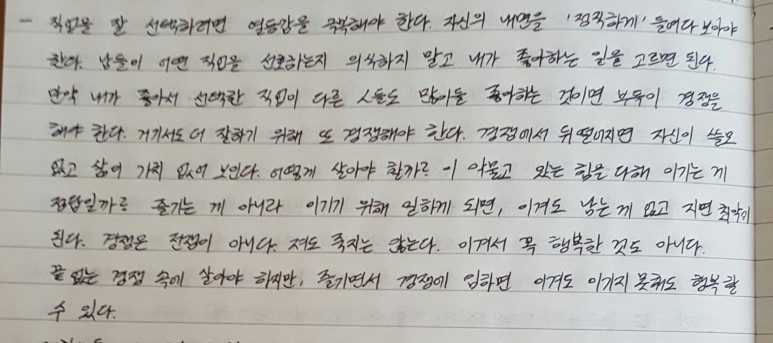 - 직업을 잘 선택하려면 열등감을 극복해야 한다. 자신의 내면을 '정직하게' 들여다 보아야
한다. 남들이 어떤 직업을 선호하는지 의식하지 말고 내가 좋아하는 일을 고르면 된다.
만약 내가 좋아서 선택한 직업이 다른 사람들도 많이들 좋아하는 것이면 부득이 경쟁을
해야 한다. 거기서도 더 잘하기 위해 또 경쟁해야 한다. 경쟁에서 뒤떨어지면 자신이 쓸모
없고 삶이 가치 없어 보인다. 어떻게 살아야 할까? 이 악물고 있는 힘을 다해 이기는 게
정답일까? 즐기는 게 아니라 이기기 위해 일하게 되면, 이겨도 남는 게 없고 지면 최악이
된다. 경쟁은 전쟁이 아니다. 져도 죽지는 않는다. 이겨서 꼭 행복한 것도 아니다.
끝없는 경쟁 속에 살아야 하지만, 즐기면서 경쟁에 임하면 이겨도 이기지 못해도 행복할
수 있다.